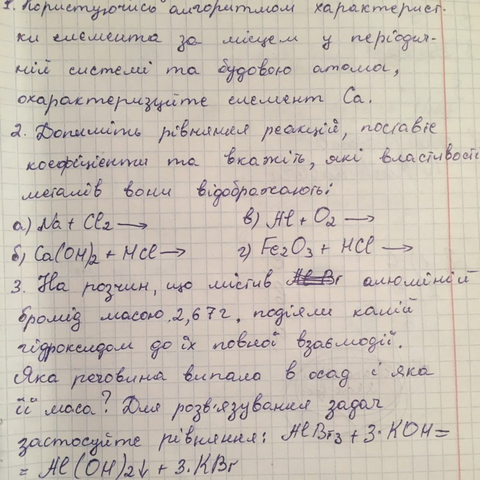 1. Користуючись алгоритмом характерист-
ки елемента за місцем у періодич-
ній системі та будовою атома,
охарактеризуйте елемент Ca.
2. Допишіть рівняння реакцій, поставте
коефіцієнти та вкажіть, які властивост
металів вони відображають:
а) Na + Cl2 → в) Al + O2 →
б) Ca(OH)2 + HCl → г) Fe2O3 + HCl →
3. На розчин, що містив алюміній
бромід масою 2,67 г. подіяли калій
гідроксидом до їх повної взаємодії.
Яка речовина випала в осад і яка
її маса? Для розв'язування задач
застосуйте рівняння: AlBr3 + 3·KOH =
= Al(OH)2↓ + 3·KBr